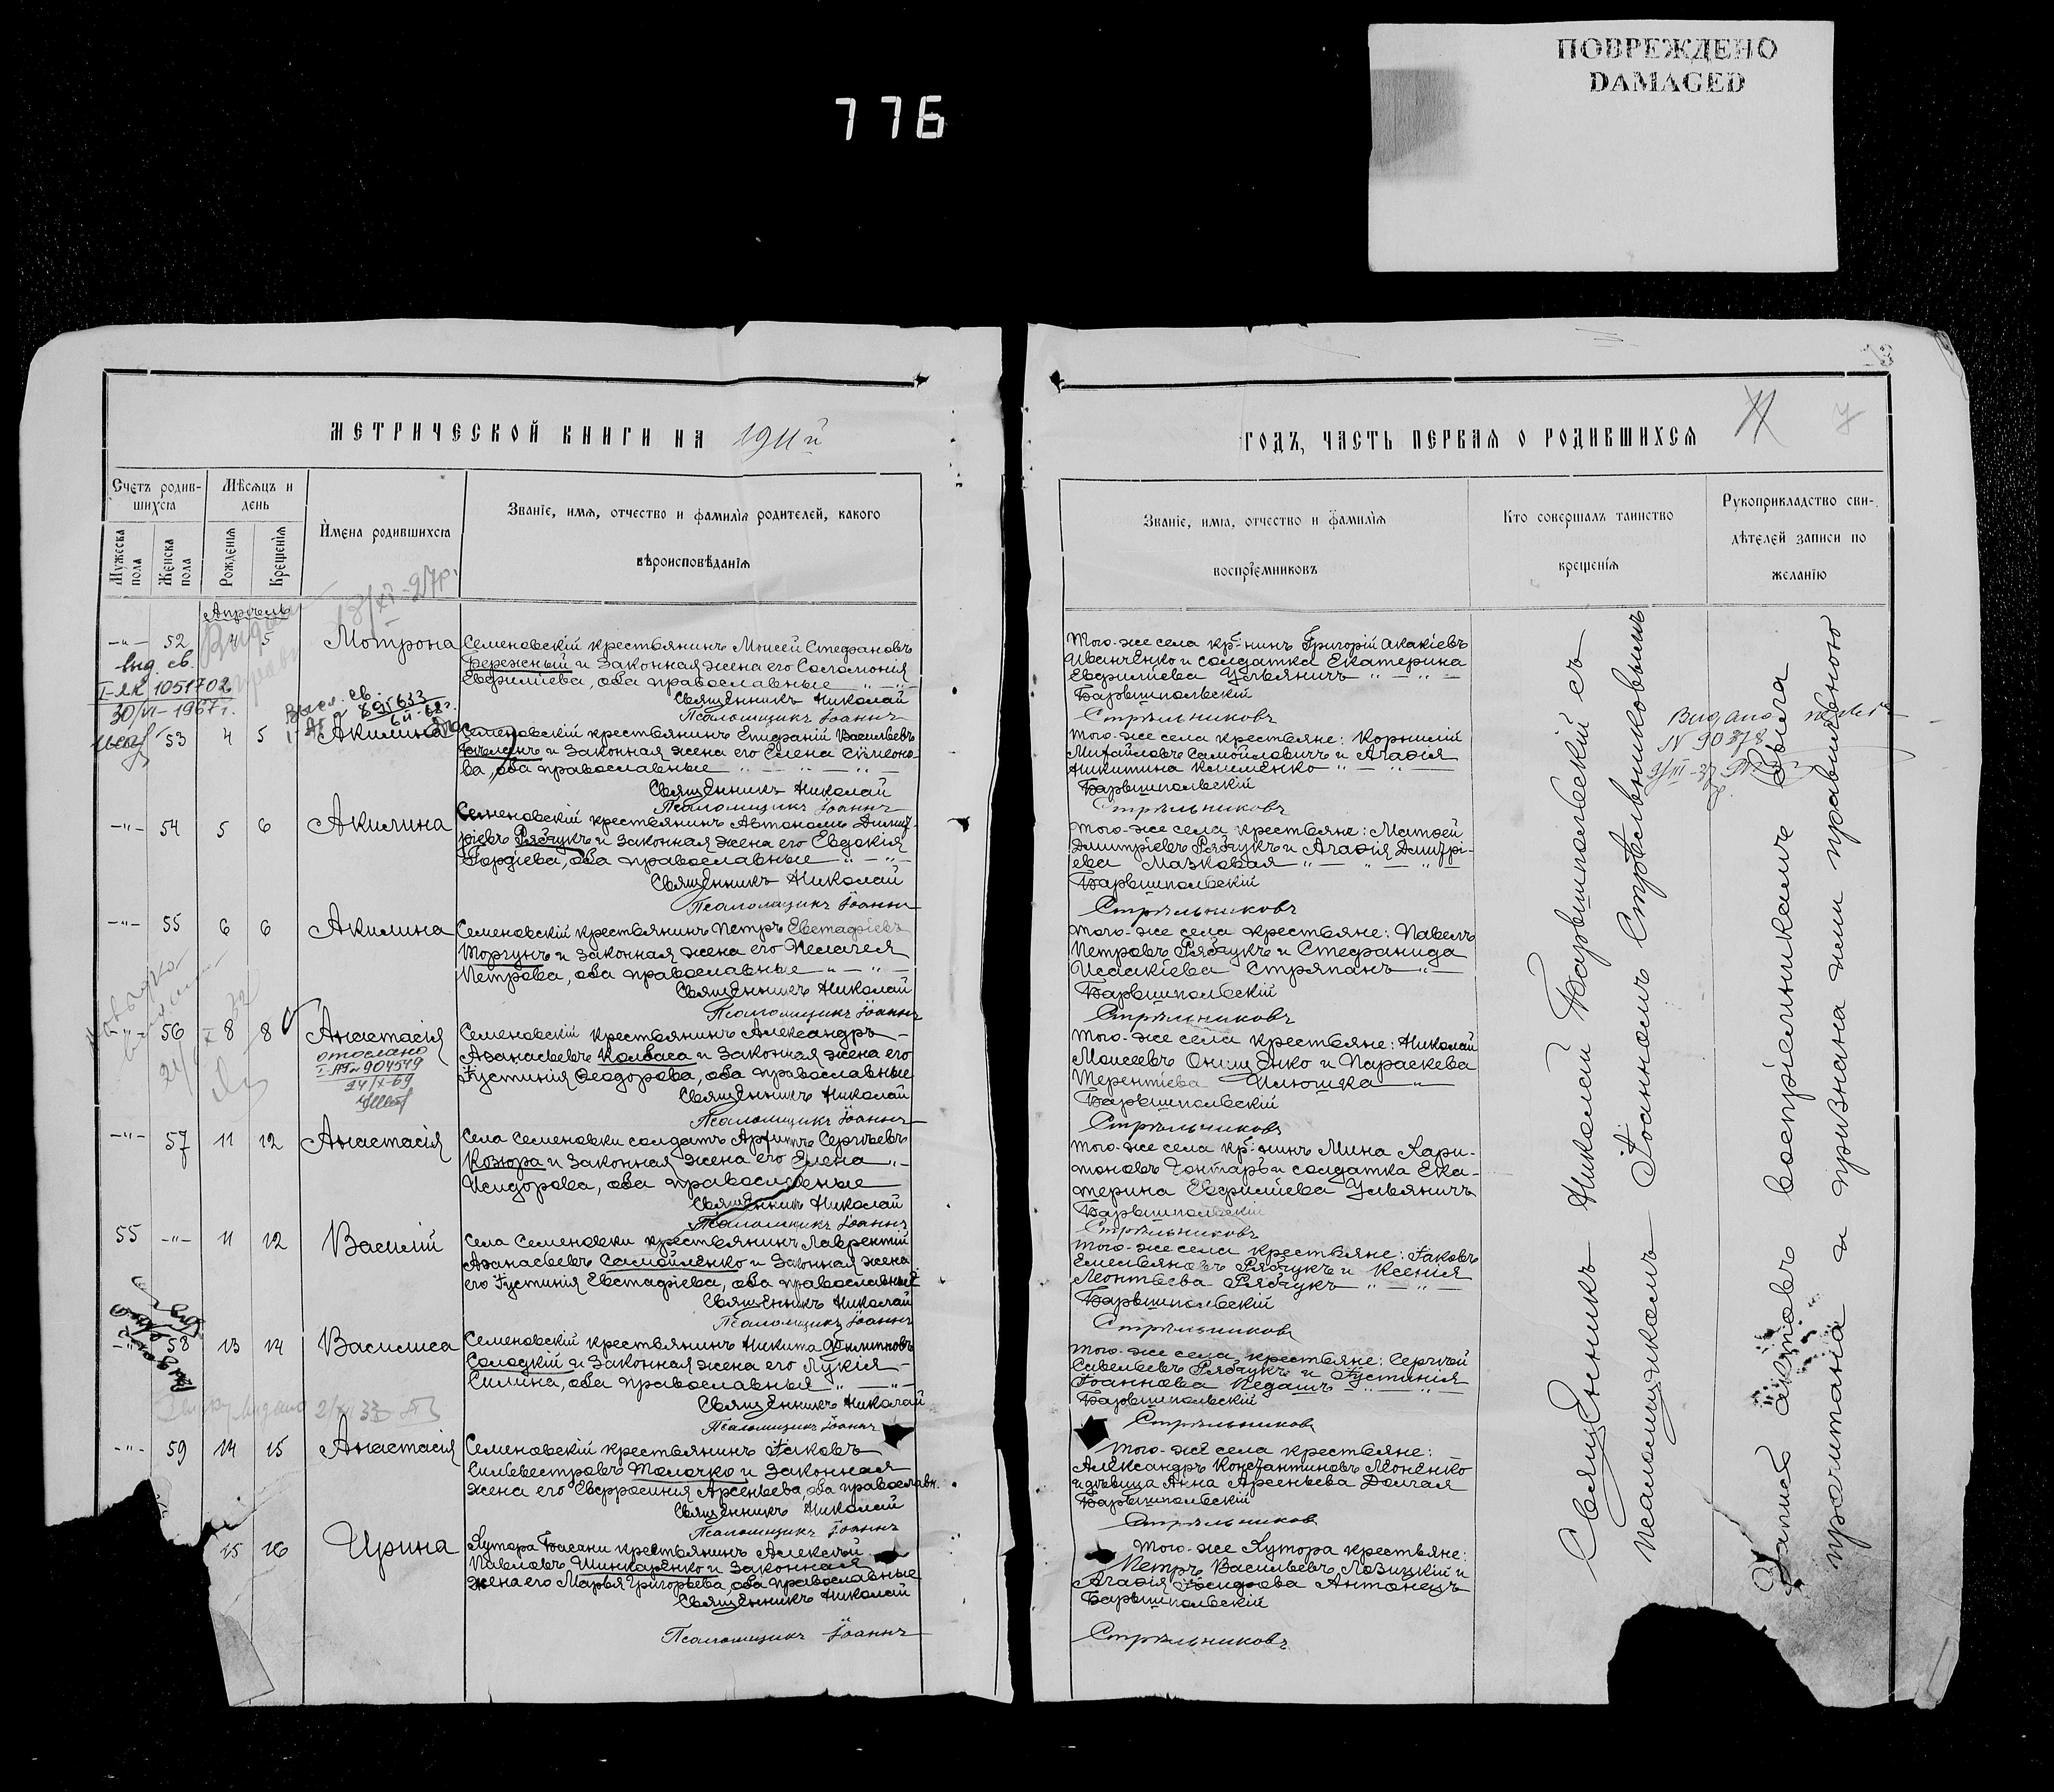 ПОВРЕЖДЕНО
DAMAGED
776
МЕТРИЧЕСКОЙ КНИГИ НА 1911й
Счетъ родив-
шихся
Мѣсяцъ и
день
Мужеска
пола
Женска
пола
Рожденія
Крещенія
Имена родившихся
Званіе, имя, отчество и фамилія родителей, какого
вѣроисповѣданія
Апрѣль
18/XI-27р.
52 4 5 Мотрона
Семеновскій крестьянинъ Моисей Стефановъ
Бережный и законная жена его Соломонія
Евфиміева, оба православные
Священникъ Николай
Псаломщикъ Іоаннъ
выд. св.
I-ЯК 1051702
30/VI-1967 г.
53 4 5 Акилина
Семеновскій крестьянинъ Епифаній Васильевъ
и законная жена его Елена Симеоно-
ва, оба православные
Священникъ Николай
Псаломщикъ Іоаннъ
54 5 6 Акилина
Семеновскій крестьянинъ Автономъ Димит-
ріевъ Рябчукъ и законная жена его Евдокія
Гордіева, оба православные
Священникъ Николай
Псаломщикъ Іоаннъ
55 6 6 Акилина
Семеновскій крестьянинъ Петръ Евстафіевъ
Моргунъ и законная жена его Пелагея
Петрова, оба православные
Священникъ Николай
Псаломщикъ Іоаннъ
56 8 8 Анастасія
отослано
904549
24/X-69
Семеновскій крестьянинъ Александръ
Аѳанасьевъ Колбаса и законная жена его
Іустинія Ѳеодорова, оба православные
Священникъ Николай
Псаломщикъ Іоаннъ
57 11 12 Анастасія
Села Семеновки солдатъ Сергѣевъ
Козюра и законная жена его Елена
Исидорова, оба православные
Священникъ Николай
Псаломщикъ Іоаннъ
55 11 12 Василій
Села Семеновки крестьянинъ Лаврентій
Аѳанасьевъ Самойленко и законная жена
его Іустинія Евстафіева, оба православные
Священникъ Николай
Псаломщикъ Іоаннъ
58 13 14 Василиса
Семеновскій крестьянинъ Никита Филипповъ
Солодкій и законная жена его Лукія
Силина, оба православныя
Священникъ Николай
Псаломщикъ Іоаннъ
59 14 15 Анастасія
Семеновскій крестьянинъ Іаковъ
Сильвестровъ Толочко и законная
жена его Евфросинія Арсеньева, оба православн.
Священникъ Николай
Псаломщикъ Іоаннъ
15 16 Ирина
Хутора Басани крестьянинъ Алексѣй
Павловъ Шинкаренко и законная
жена его Марья Григорьева, оба православные
Священникъ Николай
Псаломщикъ Іоаннъ
ГОДЪ, ЧАСТЬ ПЕРВАЯ О РОДИВШИХСЯ
Званіе, имя, отчество и фамилія
воспріемниковъ
Кто совершалъ таинство
крещенія
Рукоприкладство сви-
дѣтелей записи по
желанію
Того-же села кр-нинъ Григорій Акакіевъ
Иванченко и солдатка Екатерина
Евфиміева Ульяничъ
Барвшпольскій
Стрѣльниковъ
Того-же села крестьяне: Корнилій
Михайловъ Самойловичъ и Агафія
Никитина Клименко
Барвшпольскій
Стрѣльниковъ
Того-же села крестьяне: Матѳей
Дмитріевъ Рябчукъ и Агафія Дмитрі-
ева Мазковая
Барвшпольскій
Стрѣльниковъ
Того-же села крестьяне: Павелъ
Петровъ Рябчукъ и Стефанида
Исаакіева Стряпанъ
Барвшпольскій
Стрѣльниковъ
Того-же села крестьяне: Николай
Моисеевъ Онищенко и Параскева
Терентіева Илюшка
Барвшпольскій
Стрѣльниковъ
Того-же села кр-нинъ Мина Хари-
тоновъ Гонтарь и солдатка Ека-
терина Евфиміева Ульяничъ
Барвшпольскій
Стрѣльниковъ
Того-же села крестьяне: Іаковъ
Емельяновъ Рябчукъ и Ксенія
Леонтьева Рябчукъ
Барвшпольскій
Стрѣльниковъ
Того-же села крестьяне: Сергѣй
Савельевъ Рябчукъ и Іустинія
Іоаннова Педашъ
Барвшпольскій
Стрѣльниковъ
Того-же села крестьяне:
Александръ Константиновъ Моненко
и дѣвица Анна Арсеньева Долгая
Барвшпольскій
Стрѣльниковъ
Того-же Хутора крестьяне:
Петръ Васильевъ Лозицкій и
Агафія Исидрова Антонецъ
Барвшпольскій
Стрѣльниковъ
Священникъ Николай Барвшпольскій съ
псаломщикомъ Іоанномъ Стрѣльниковымъ
Видано
N 90378
Запись актовъ воспріемникамъ была
прочитана и признана ими правильною